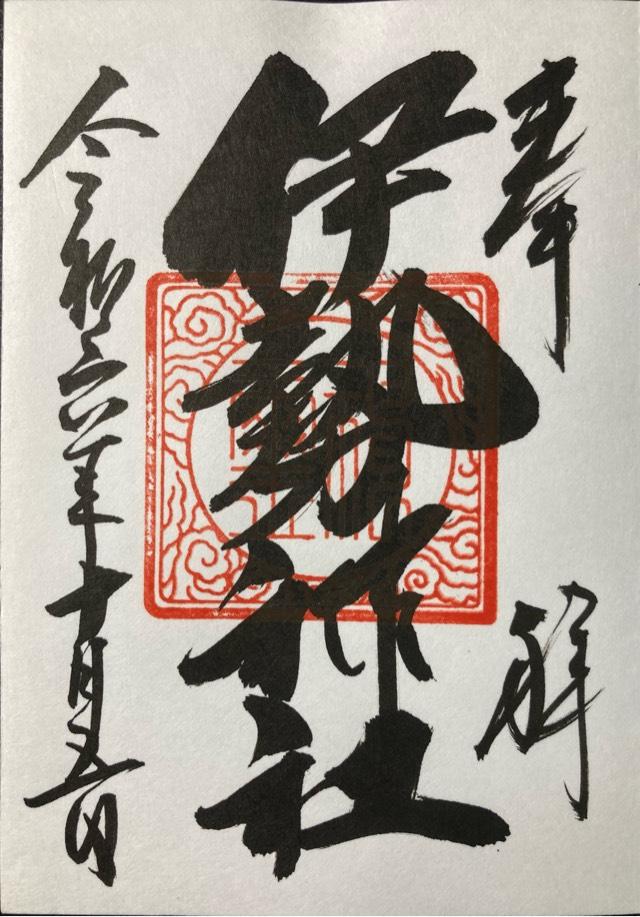 奉拝
伊勢神社
令和六年十月五日